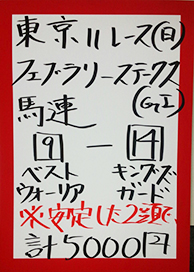 東京11レース(日)
フェブラリーステークス
馬連 (GI)
9 － 14
ベスト キングズ
ウォーリア ガード
※安定した2頭、
計5000円